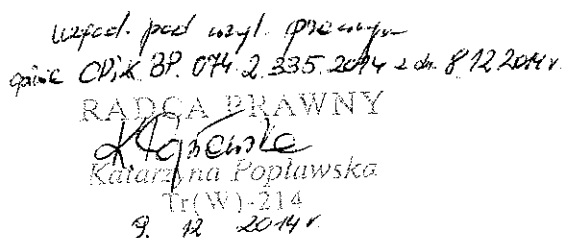 uzgod. pod wzgl. prawnym
opinia CPiK.BP.074.2.335.2014 z dn. 8.12.2014 r.
RADCA PRAWNY
Katarzyna Popławska
Tr(W)-214
9. 12 2014 r